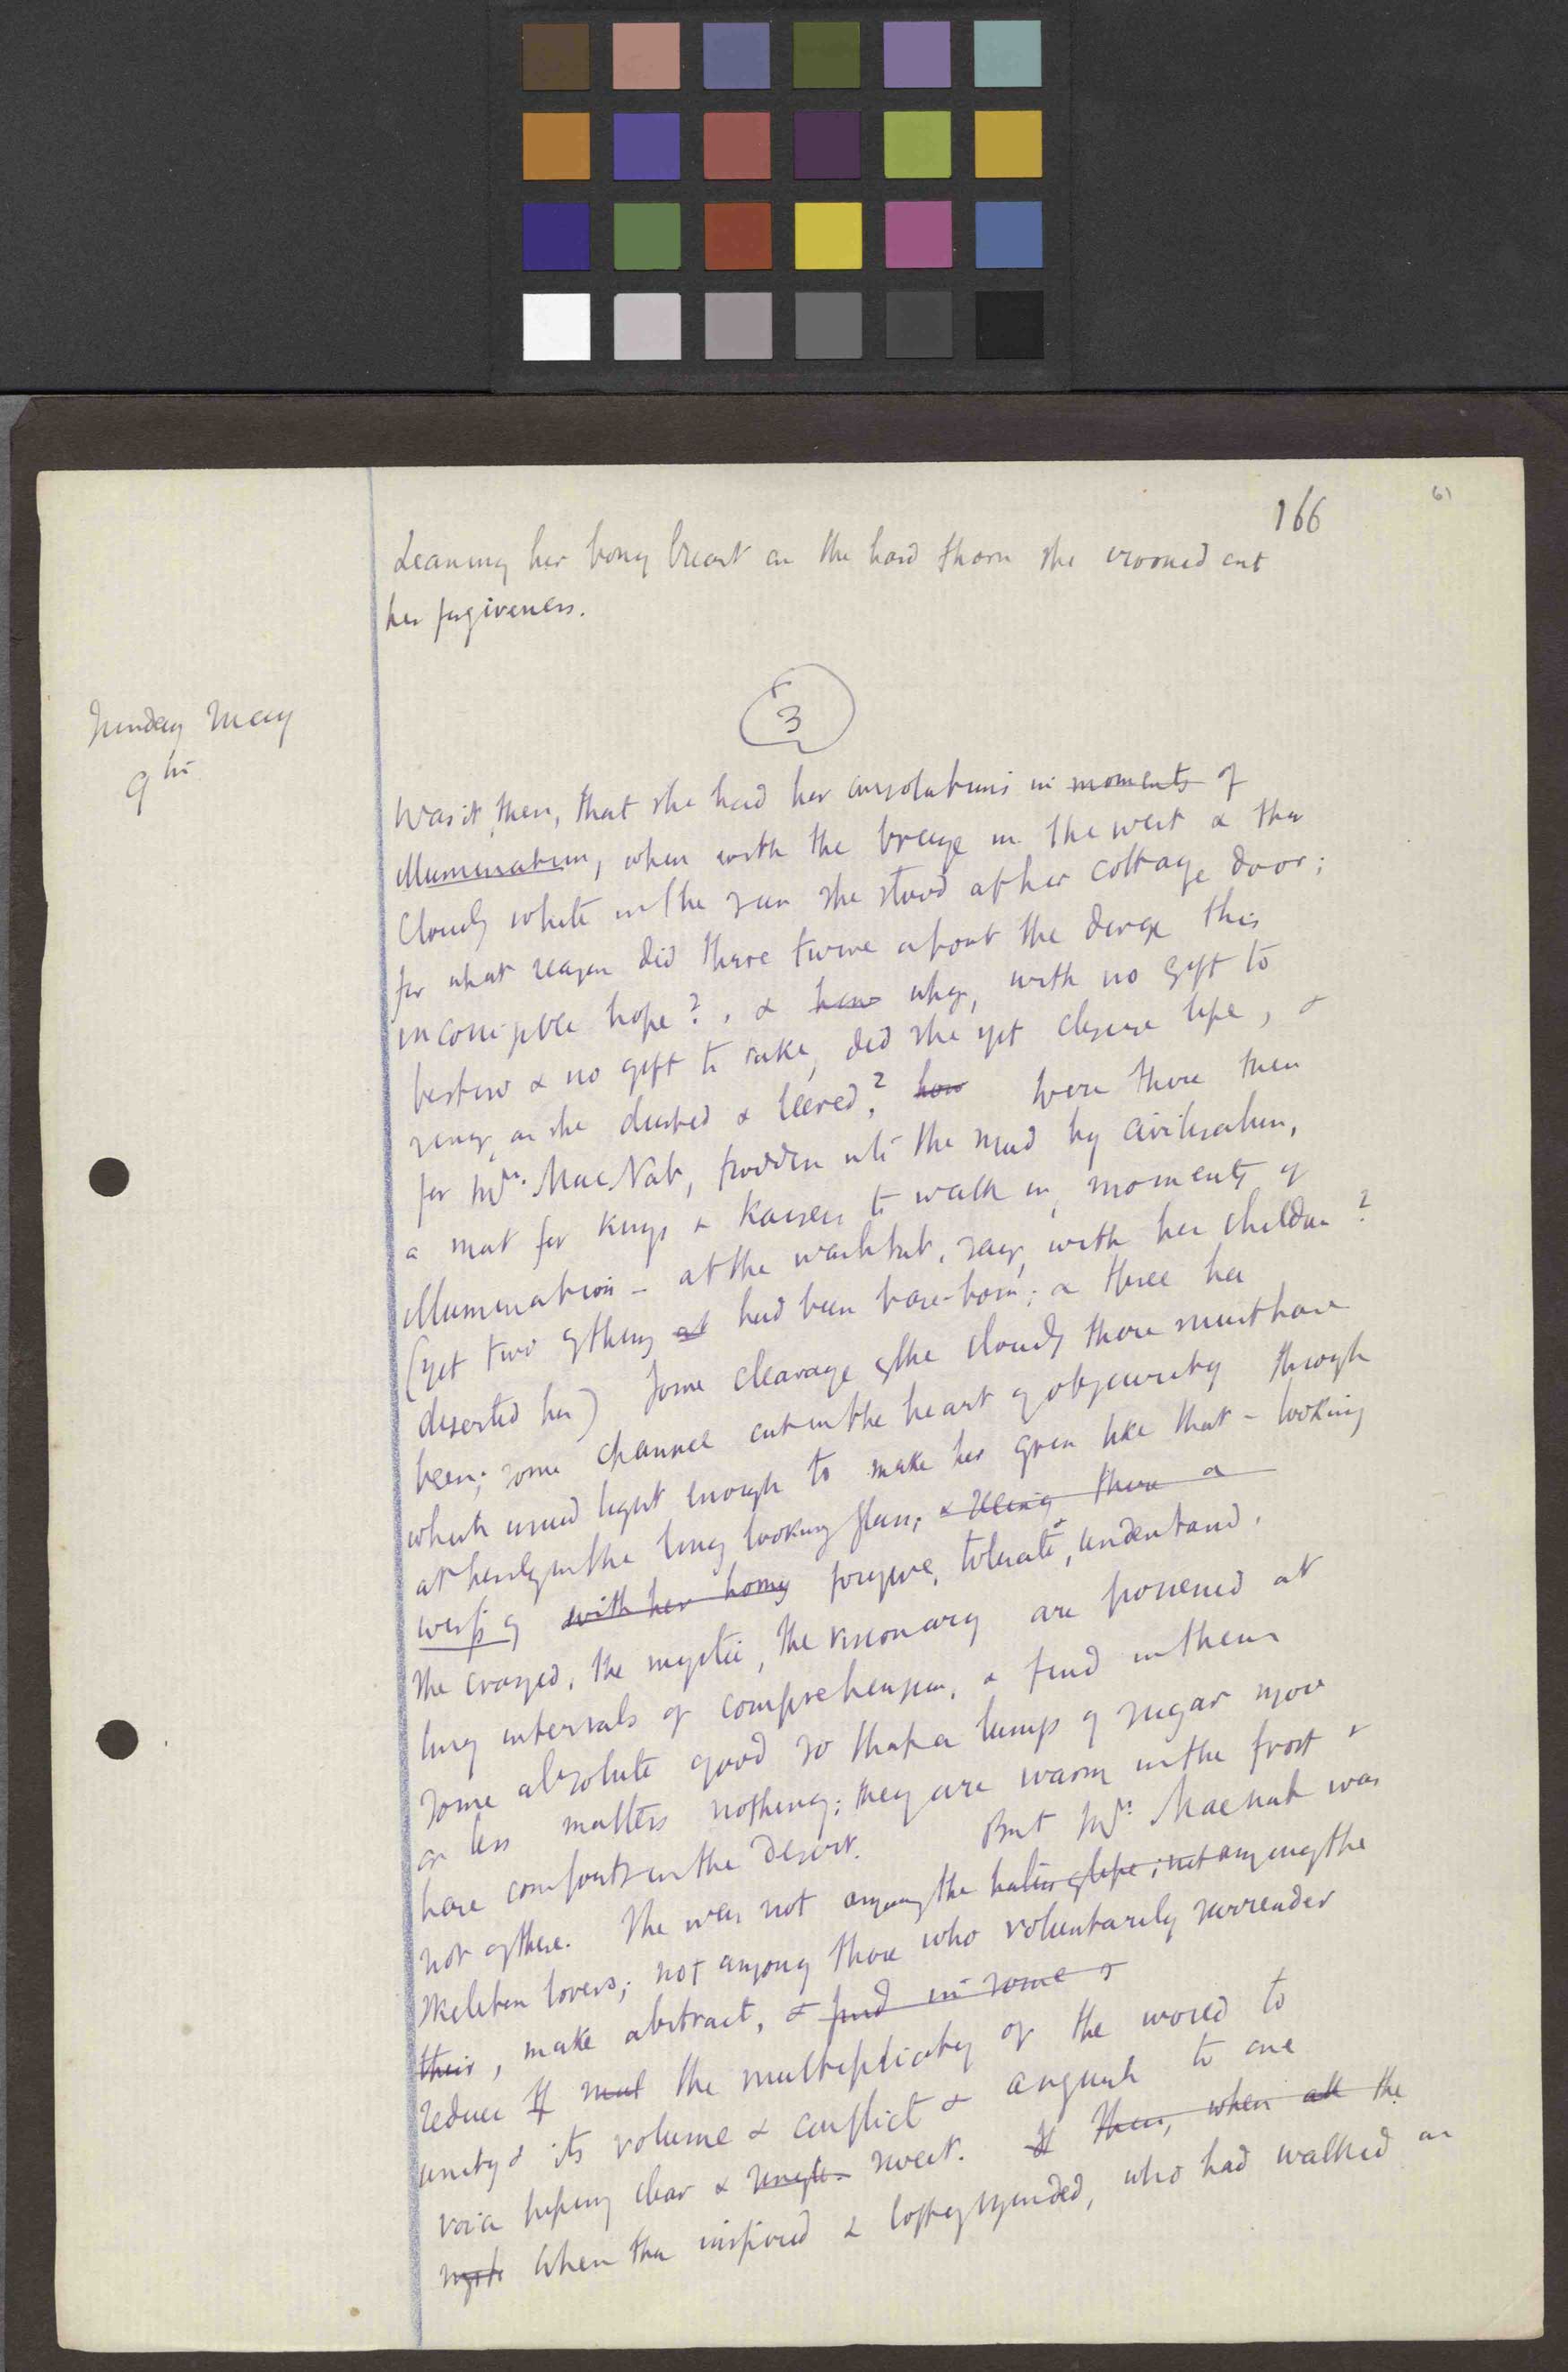 166
61
Leaning her bony breast on the hard thorn she crooned out
her forgiveness.
Sunday May
9th
3
Was it, then, that she had her consolations in moments of
illumination, when with the breeze in the west & the
clouds white in the sun she stood at her cottage door;
for what reason did there twine about the dirge this
incorrigible hope?, & how why, with no gift to
bestow & no gift to take, did she yet desire life, &
sang, as she dusted & leered? how Were there then
for Mrs. MacNab, trodden into the mud by civilisation,
a mat for kings & Kaisers to walk on, moments of
illumination - at the washtub, say, with her children?
(yet two of them had been base-born; & three had
deserted her) Some cleavage of the clouds there must have
been; some channel cut in the heart of obscurity through
which issued light enough to make her grin like that - looking
at herself in the long looking glass; & seeing there a
wisp of with her bony forgive, tolerate, & understand.
The crazed, the mystic, the visionary are possessed at
long intervals of comprehension, & find in them
some absolute good so that a lump of sugar more
or less matters nothing; they are warm in the frost &
have comforts in the desert. But Mrs. Macnab was
not of these. She was not among the haters of life; not among the
skeleton lovers; not among those who voluntarily surrender
their, make abstract, & find in some &
reduce the multiplicity of the world to
unity & its volume & conflict & anguish to one
voice piping clear & single sweet. If Then, when all the
When the inspired & lofty minded, who had walked on